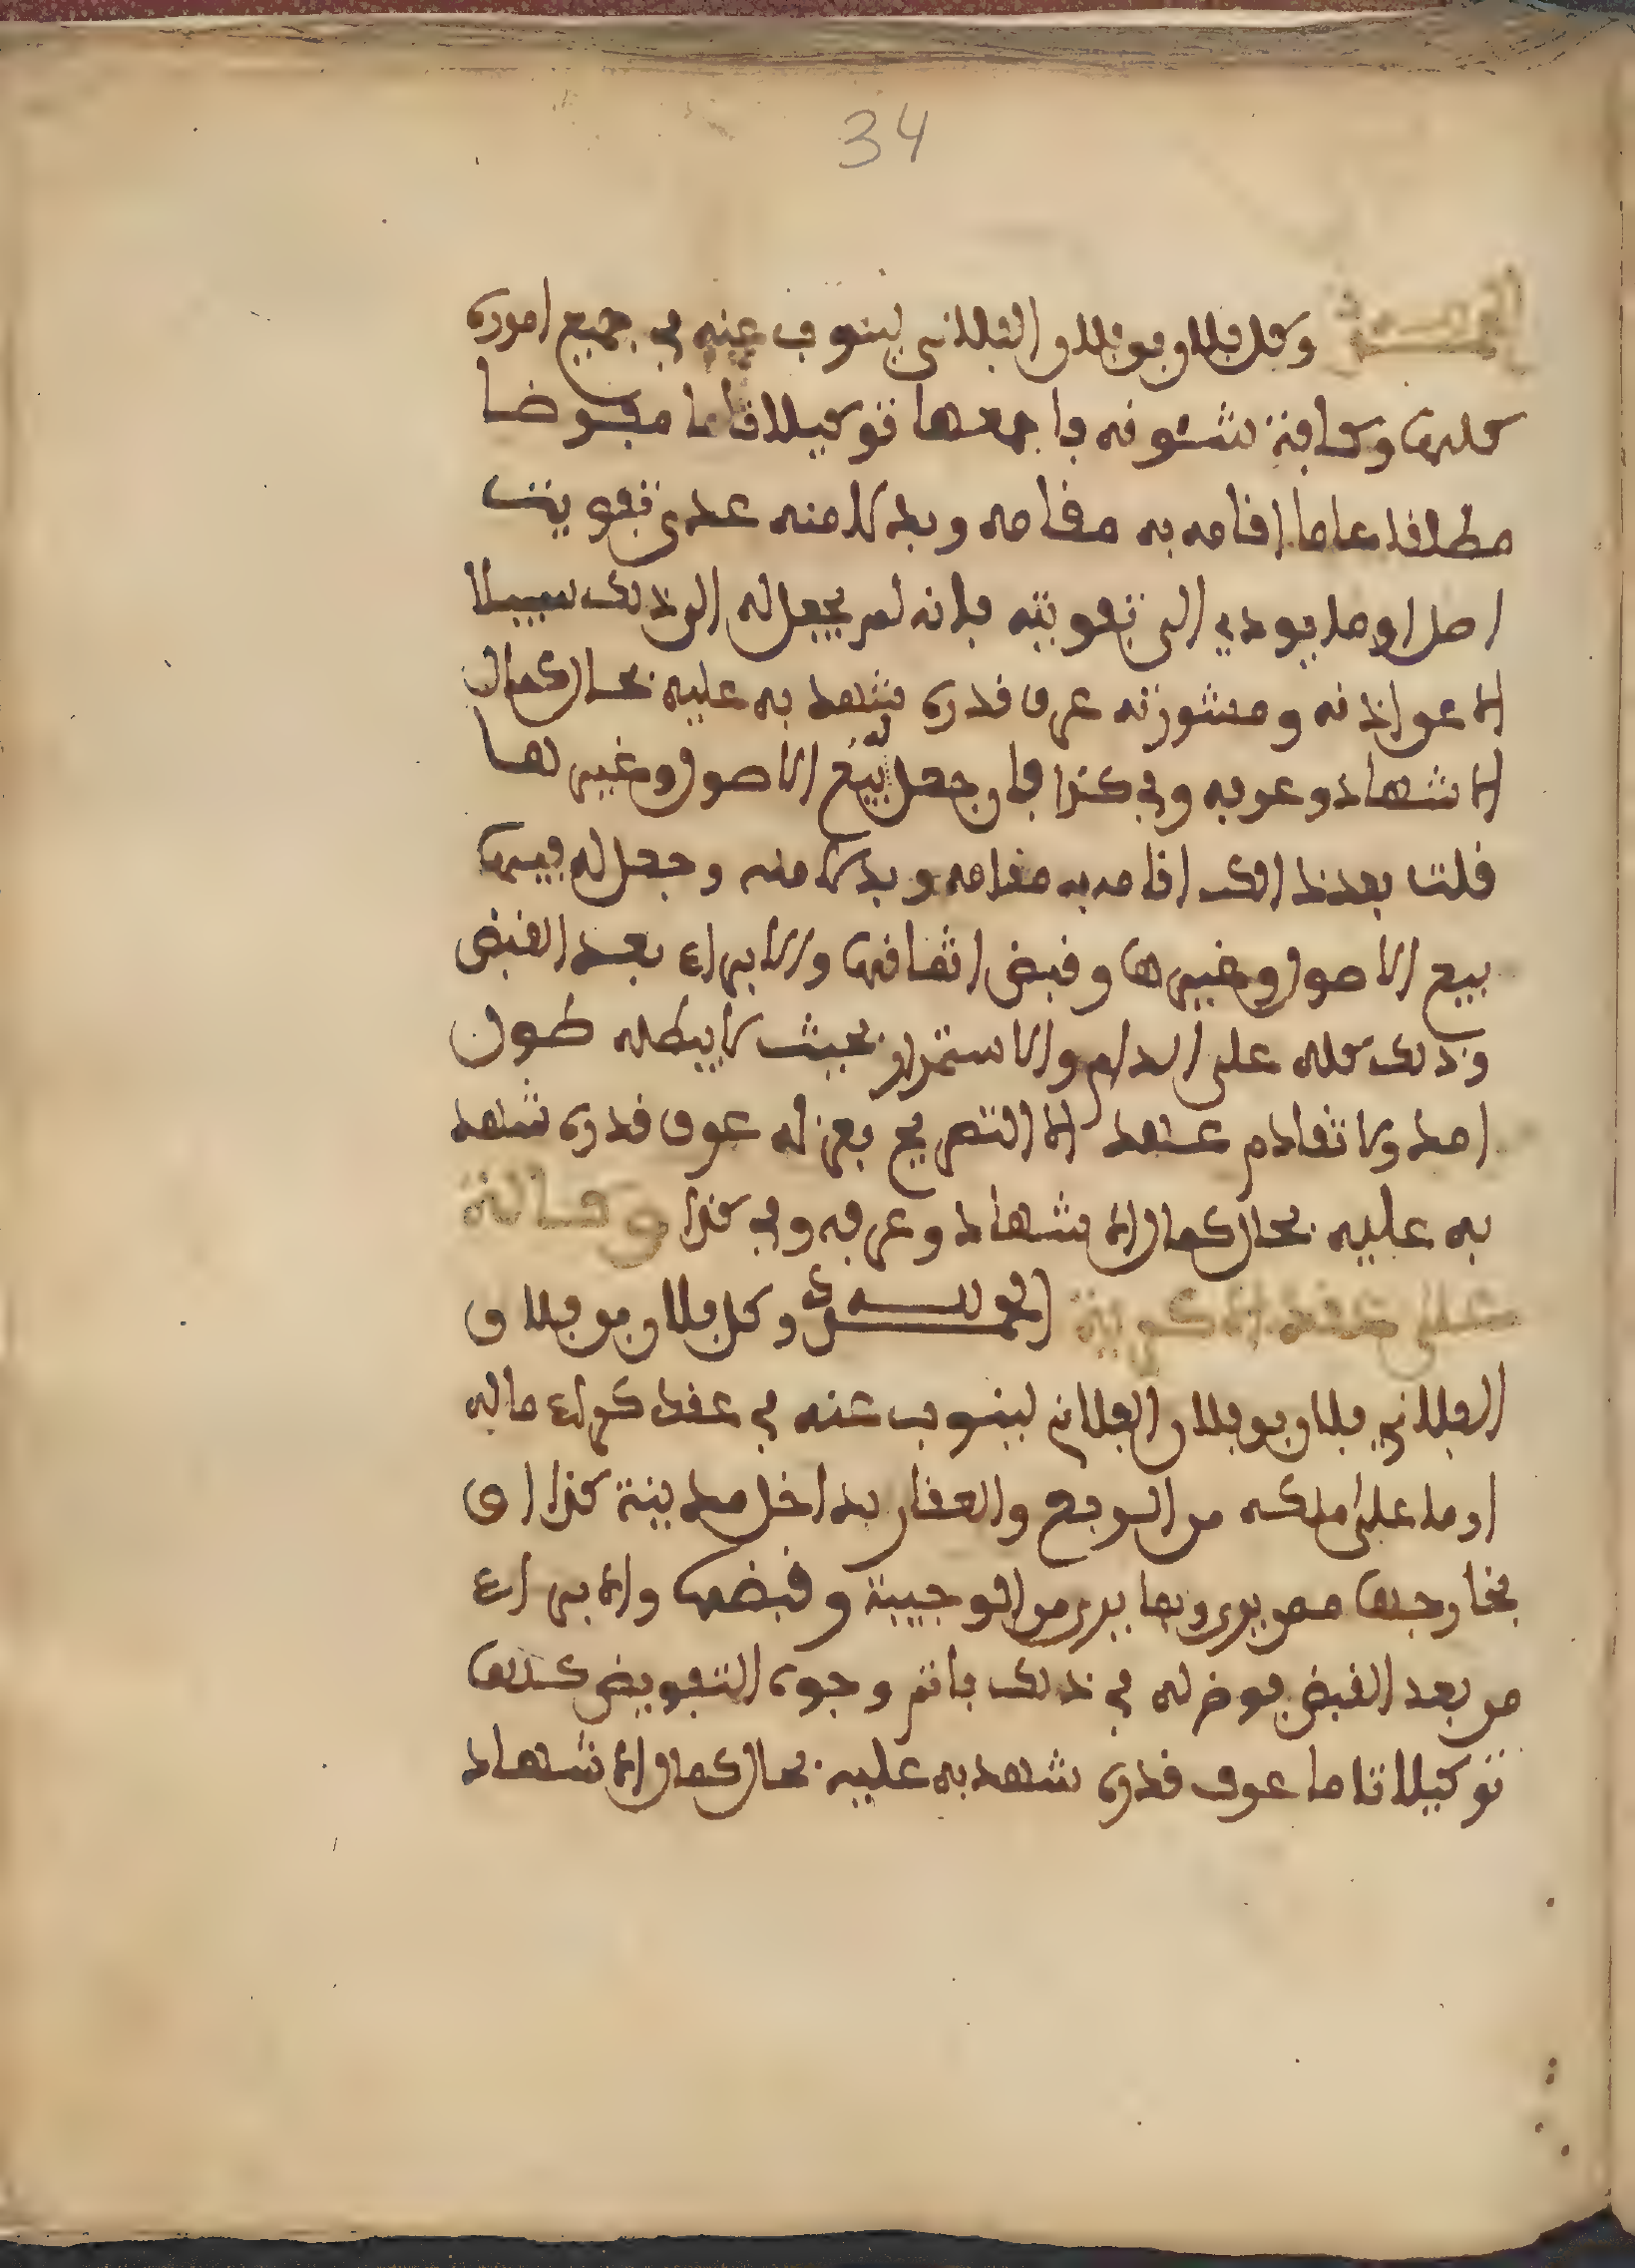 34
الحمد لله وكل فلان بن فلان الفلاني لينوب عنه في جميع اموره
كلها وكافة شئونه باجمعها توكيلا تاما مفوضا
مطلقا عاما اقامه به مقامه وبدلا منه عدى تفويت
اصل او ما يودي الى تفويته فانه لم يجعل له الى ذلك سبيلا
الا عن اذنه ومشورته عرف قدره شهد به عليه بحال كمال
الاشهاد وعرفه وفي كذا فان جعل له بيع الاصول وغيرها
قلت بعد ذلك اقامه به مقامه وبدلا منه وجعل له فيها
بيع الاصول وغيرها وقبض اثمانها والابراء بعد القبض
وذلك كله على الدوام والاستمرار بحيث لا يبطله طول
امد ولا تقادم عهد الا التصريح بعزله عرف قدره شهد
به عليه بحال كمال الاشهاد وعرفه وفي كذا وكالة
على عقد الاكرية الحمد لله وكل فلان بن فلان
الفلاني فلان بن فلان الفلاني لينوب عنه في عقد كراء ماله
او ما على ملكه من الربع والعقار بداخل مدينة كذا او
بخارجها ممن يرى وبما يرى من الوجيبة وقبضها والابراء
من بعد القبض فوض له في ذلك باتم وجوه التفويض كلها
توكيلا تاما عرف قدره شهد به عليه بحال كمال الاشهاد